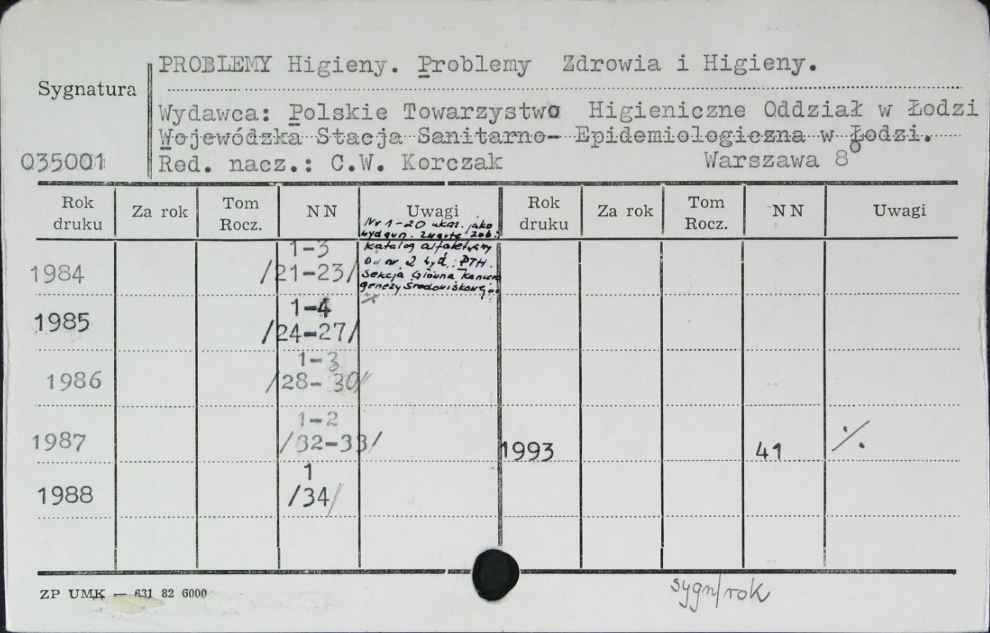 PROBLEMY Higieny. Problemy Zdrowia i Higieny.
Sygnatura
Wydawca: Polskie Towarzystwo Higieniczne Oddział w Łodzi
Wojewódzka Stacja Sanitarno- Epidemiologiczna w Łodzi.
035001 Red. nacz.: C.W. Korczak Warszawa 8°
Rok druku Za rok Tom Rocz. NN Uwagi Rok druku Za rok Tom Rocz. NN Uwagi
Nr 1-20 ukaz. jako
wydawn. zwarte zob.
katalog alfabetyczny
Od nr 2 wyd.: PTH.
Sekcja Główna Kancero
genezy Środowiskowej.
1984 1-3
/21-23/
1985 1-4
/24-27/
1986 1-3
/28-30/
1987 1-2
/32-33/
1993 41 ·/.
1988 1
/34/
ZP UMK — 631 82 6000
sygn/rok